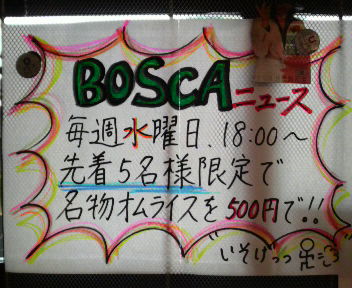 BOSCAニュース
毎週水曜日、18:00〜
先着5名様限定で
名物オムライスを500円で!!
"いそげっっ